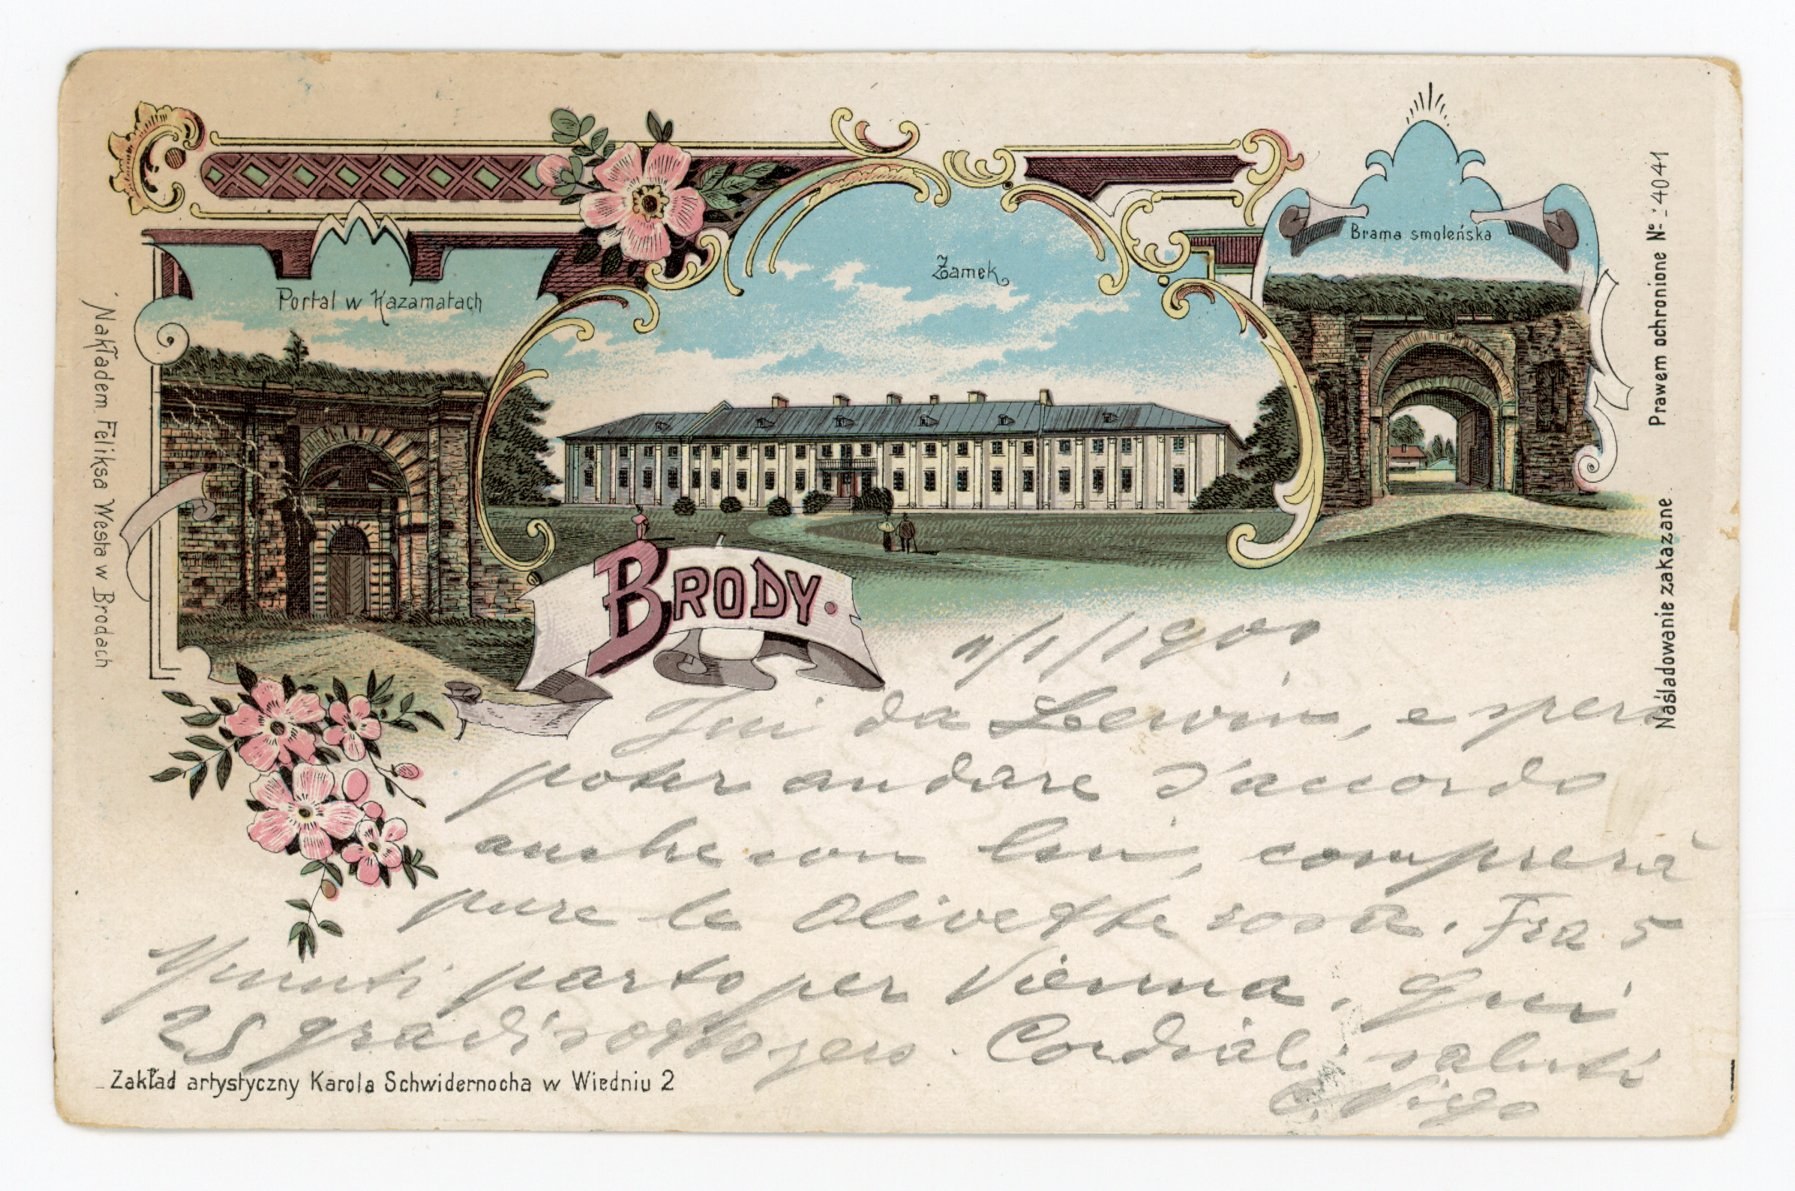 Portal w Kazamatach
Zamek
Brama smoleńska
Nakładem Feliksa Westa w Brodach
Prawem ochronione № 4041
Naśladowanie zakazane
BRODY.
/1/1900
Fui da Lewin, e spero
poter andare d'accordo
anche con lui, comprerà
pure le Olivette rosa. Fra 5
Minuti parto per Vienna. Qui
25 gradi sotto zero. Cordiali saluti
C. Vigo
Zakład artystyczny Karola Schwidernocha w Wiedniu 2